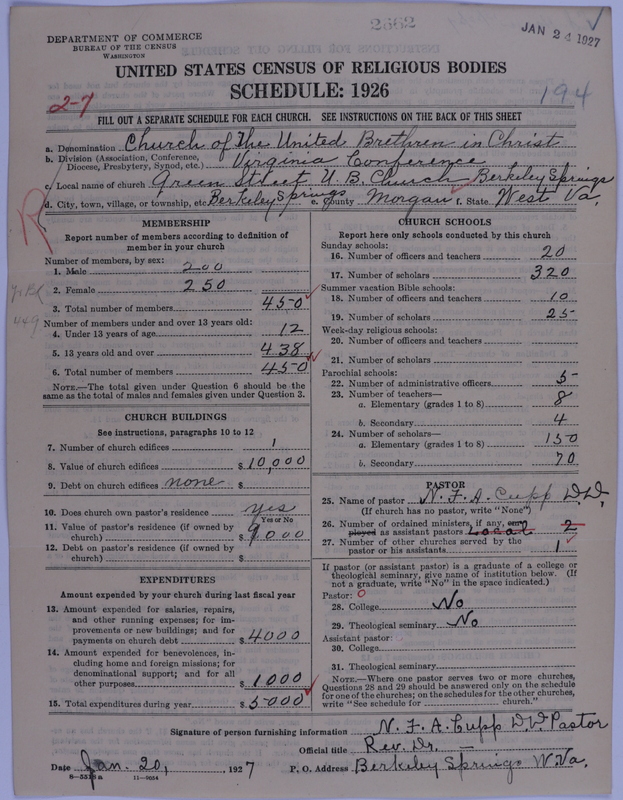 2662
JAN 24 1927
DEPARTMENT OF COMMERCE
BUREAU OF THE CENSUS
WASHINGTON
UNITED STATES CENSUS OF RELIGIOUS BODIES
SCHEDULE: 1926
2-7
194
FILL OUT A SEPARATE SCHEDULE FOR EACH CHURCH. SEE INSTRUCTIONS ON THE BACK OF THIS SHEET
a. Denomination Church of The United Brethren in Christ
b. Division (Association, Conference, Diocese, Presbytery, Synod, etc.) Virginia Conference
c. Local name of church Green Street U.B. Church - Berkeley Springs
d. City, town, village, or township, etc. Berkeley Springs e. County Morgan f. State West Va.
R
MEMBERSHIP
Report number of members according to definition of
member in your church
Number of members, by sex:
1. Male 200
2. Female 250
3. Total number of members 450
Number of members under and over 13 years old:
4. Under 13 years of age 12
5. 13 years old and over 438
6. Total number of members 450
NOTE.—The total given under Question 6 should be the
same as the total of males and females given under Question 3.
CHURCH BUILDINGS
See instructions, paragraphs 10 to 12
7. Number of church edifices 1
8. Value of church edifices $10,000
9. Debt on church edifices none $
10. Does church own pastor's residence yes
Yes or No
11. Value of pastor's residence (if owned by
church) $ 9000
12. Debt on pastor's residence (if owned by
church) $
EXPENDITURES
Amount expended by your church during last fiscal year
13. Amount expended for salaries, repairs,
and other running expenses; for im-
provements or new buildings; and for
payments on church debt $4000
14. Amount expended for benevolences, in-
cluding home and foreign missions; for
denominational support; and for all
other purposes $1000
15. Total expenditures during year $5000
CHURCH SCHOOLS
Report here only schools conducted by this church
Sunday schools:
16. Number of officers and teachers 20
17. Number of scholars 320
Summer vacation Bible schools:
18. Number of officers and teachers 10
19. Number of scholars 25
Week-day religious schools:
20. Number of officers and teachers
21. Number of scholars
Parochial schools:
22. Number of administrative officers 5
23. Number of teachers—
a. Elementary (grades 1 to 8) 8
b. Secondary 4
24. Number of scholars—
a. Elementary (grades 1 to 8) 150
b. Secondary 70
PASTOR
25. Name of pastor N. F. A. Cupp D.D.
(If church has no pastor, write "None")
26. Number of ordained ministers, if any, em-
ployed as assistant pastors Local 2
27. Number of other churches served by the
pastor or his assistants 1
If pastor (or assistant pastor) is a graduate of a college or
theological seminary, give name of institution below. (If
not a graduate, write "No" in the space indicated.)
Pastor: 0
28. College No
29. Theological seminary No
Assistant pastor:
30. College
31. Theological seminary
NOTE.—Where one pastor serves two or more churches,
Questions 28 and 29 should be answered only on the schedule
for one of the churches; on the schedules for the other churches,
write "See schedule for church."
Signature of person furnishing information N. F. A. Cupp D.D. Pastor
Official title Rev. Dr. —
Date Jan. 20, 1927 P. O. Address Berkeley Springs W.Va.
11—9054